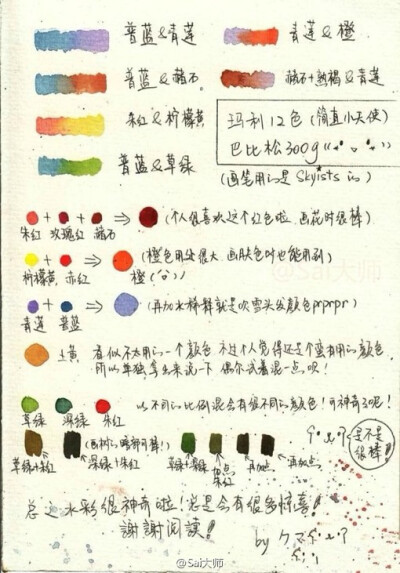 普蓝&青莲
青莲&橙
普蓝&赭石
赭石+熟褐&青莲
朱红&柠檬黄
普蓝&草绿
玛利12色(简直小天使)
巴比松300g
(画笔用的是Skyists的)
朱红 玫瑰红 赭石
(个人很喜欢这个红色啦 画花时很棒)
柠檬黄 赤红
橙
(橙色用处很大 画肤色时也能用到)
青莲 普蓝
(再加水稀释就是吹雪头发颜色prprpr)
土黄
看似不太用的一个颜色 不过个人觉得还是个蛮有用的颜色
所以单独拿出来说一下 偶尔试着混一点呗!
草绿 深绿 朱红
以不同的比例混会有很不同的颜色!可神奇了呢!
(画树的暗部可棒!)
是不是很棒!
草绿+朱红
深绿+朱红
草绿+深绿
加点朱红
再加点
再加点
总之水彩很神奇啦!总是会有很多惊喜!
謝謝阅读!
by
@Sai大师
@Sai大师